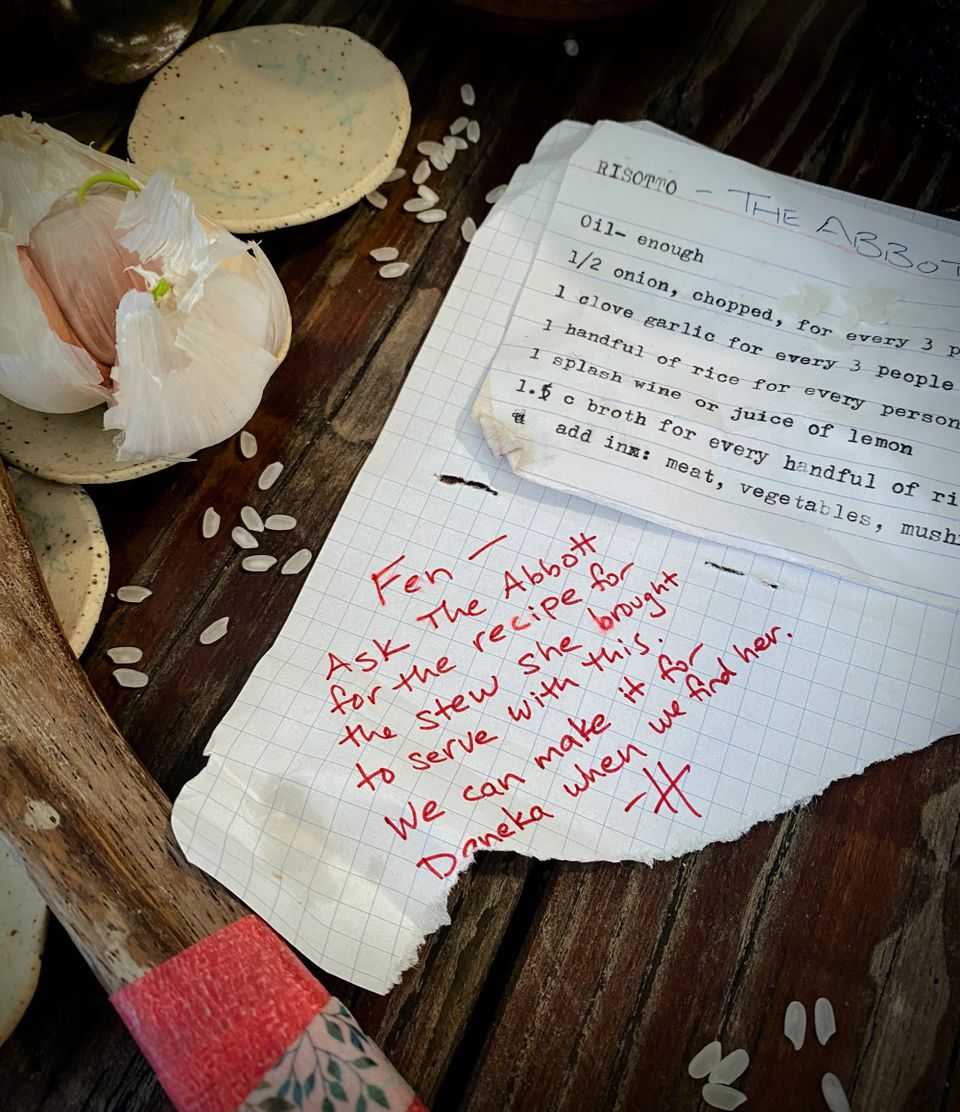 RISOTTO - THE ABBOT
Oil- enough
1/2 onion, chopped, for every 3 p
1 clove garlic for every 3 people
1 handful of rice for every person
1 splash wine or juice of lemon
1.5 c broth for every handful of ri
add inx: meat, vegetables, mush
Fen —
Ask The Abbott
for the recipe for
the stew she brought
to serve with this.
We can make it for
Daneka when we find her.
-H